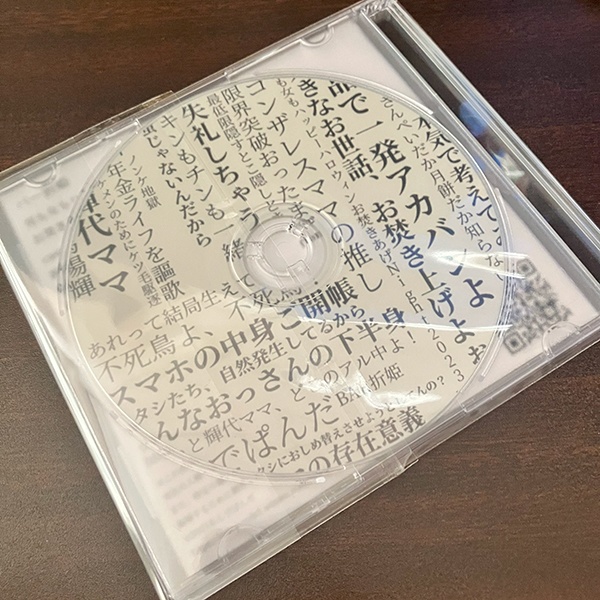 本気で考えてこのな
さんべいだか月餅だか知らな
話で一発アカバンよ
お焚き上げよぉ
きなお世話
お焚きあげNight!2023
も女もハッピーハロウィン
コンザレスママの推し
限界突破おったま
最低限隠すとこ隠し
失礼しちゃう
キンもチンも一緒
じゃないんだから
ノンケ地獄
年金ライフを謳歌
のためにケツ毛駆逐
輝代ママ
陽輝
あれって結局生え
不死鳥よ
スマホの中身ご開帳
タシたち、自然発生してるから
んなおっさんの下半身
と輝代ママ、
のアル中よ
BAR折姫
でぱんだ
タシにおしめ替えさせようと
の存在意義